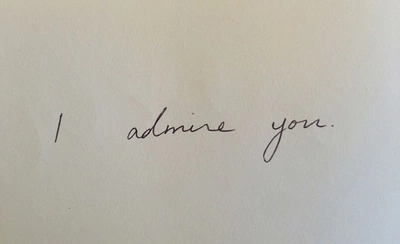 I admire you.